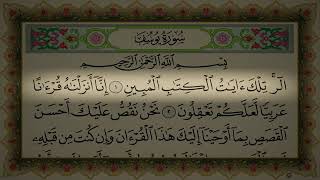 سُورَةُ يُوسُفَ
بِسْمِ اللَّهِ الرَّحْمَٰنِ الرَّحِيمِ
الٓر ۚ تِلْكَ ءَايَٰتُ ٱلْكِتَٰبِ ٱلْمُبِينِ ١ إِنَّآ أَنزَلْنَٰهُ قُرْءَٰنًا
عَرَبِيًّا لَّعَلَّكُمْ تَعْقِلُونَ ٢ نَحْنُ نَقُصُّ عَلَيْكَ أَحْسَنَ
ٱلْقَصَصِ بِمَآ أَوْحَيْنَآ إِلَيْكَ هَٰذَا ٱلْقُرْءَانَ وَإِن كُنتَ مِن قَبْلِهِۦ